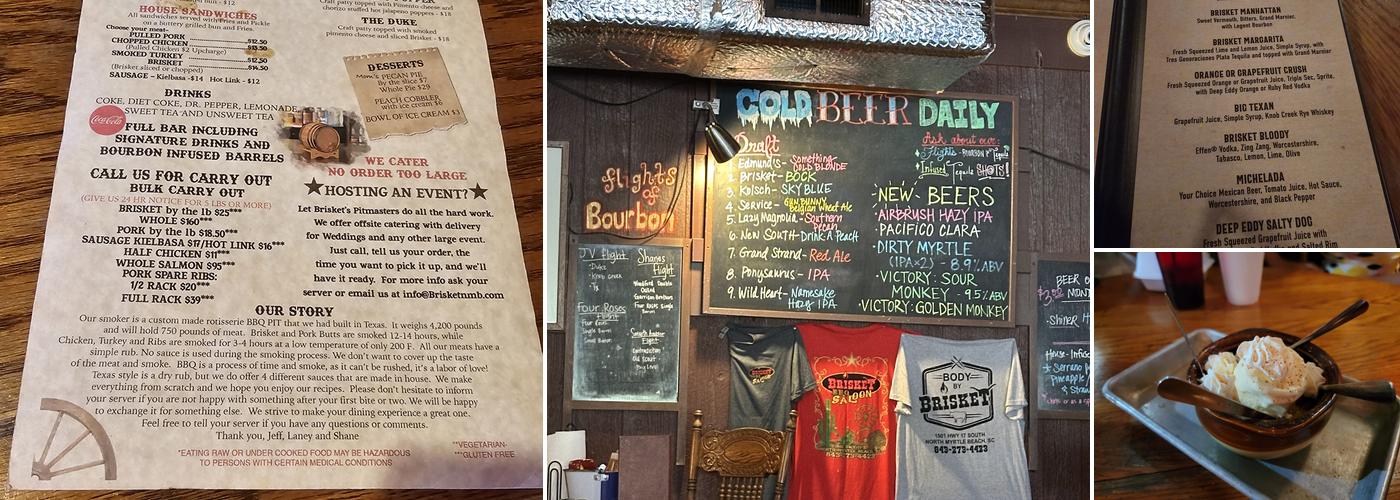 HOUSE SANDWICHES
All sandwiches served with Fries and Pickle
on a buttery grilled bun and Fries.
Choose your meat-
PULLED PORK $12.50
CHOPPED CHICKEN $13.50
(Pulled Chicken $2 Upcharge)
SMOKED TURKEY $12.50
BRISKET $14.50
(Brisket sliced or chopped)
SAUSAGE - Kielbasa -$14 Hot Link - $12
Craft patty topped with Pimento cheese and
chorizo stuffed hot jalapeno poppers - $18
THE DUKE
Craft patty topped with smoked
pimento cheese and sliced Brisket - $18
DESSERTS
Mom's PECAN PIE
By the slice $7
Whole Pie $29
PEACH COBBLER
with ice cream $6
BOWL OF ICE CREAM $3
DRINKS
COKE, DIET COKE, DR. PEPPER, LEMONADE,
SWEET TEA AND UNSWEET TEA
Coca-Cola
FULL BAR INCLUDING
SIGNATURE DRINKS AND
BOURBON INFUSED BARRELS
CALL US FOR CARRY OUT
BULK CARRY OUT
(GIVE US 24 HR NOTICE FOR 5 LBS OR MORE)
BRISKET by the lb $25***
WHOLE $160***
PORK by the lb $18.50***
SAUSAGE KIELBASA $17/HOT LINK $16***
HALF CHICKEN $11***
WHOLE SALMON $95***
PORK SPARE RIBS:
1/2 RACK $20***
FULL RACK $39***
WE CATER
NO ORDER TOO LARGE
HOSTING AN EVENT?
Let Brisket's Pitmasters do all the hard work.
We offer offsite catering with delivery
for Weddings and any other large event.
Just call, tell us your order, the
time you want to pick it up, and we'll
have it ready. For more info ask your
server or email us at info@Brisketnmb.com
OUR STORY
Our smoker is a custom made rotisserie BBQ PIT that we had built in Texas. It weighs 4,200 pounds
and will hold 750 pounds of meat. Brisket and Pork Butts are smoked 12-14 hours, while
Chicken, Turkey and Ribs are smoked for 3-4 hours at a low temperature of only 200 F. All our meats have a
simple rub. No sauce is used during the smoking process. We don't want to cover up the taste
of the meat and smoke. BBQ is a process of time and smoke, as it can't be rushed, it's a labor of love!
Texas style is a dry rub, but we do offer 4 different sauces that are made in house. We make
everything from scratch and we hope you enjoy our recipes. Please don't hesitate to inform
your server if you are not happy with something after your first bite or two. We will be happy
to exchange it for something else. We strive to make your dining experience a great one.
Feel free to tell your server if you have any questions or comments.
Thank you, Jeff, Laney and Shane
*EATING RAW OR UNDER COOKED FOOD MAY BE HAZARDOUS
TO PERSONS WITH CERTAIN MEDICAL CONDITIONS
**VEGETARIAN-
***GLUTEN FREE
COLD BEER DAILY
Draft
1. Edmund's- Something COLD BLONDE
2. Brisket- BOCK
3. Kolsch- SKY BLUE
4. Service- GUN BUNNY Belgian Wheat Ale
5. Lazy Magnolia- Southern Pecan
6. New South- Drink A Peach
7. Grand Strand- Red Ale
8. Ponysaurus- IPA
9. Wild Heart- Namesake
Hazy IPA
Ask about our:
Flights- BOURBON Tequila
Infused Tequila SHOTS!
NEW BEERS
AIRBRUSH HAZY IPA
PACIFICO CLARA
DIRTY MYRTLE
(IPAx2) - 8.9% ABV
VICTORY: SOUR
MONKEY - 9.5% ABV
VICTORY: GOLDEN MONKEY
flights
of
Bourbon
JV flight
Four Roses
Flight
Shanes
Flight
BRISKET
SALOON
BODY
BY
BRISKET
1501 HWY 17 SOUTH
NORTH MYRTLE BEACH, SC
843-273-4423
BEER
Shiner
House-Infused
Serrano
Pineapple
BRISKET MANHATTAN
Sweet Vermouth, Bitters, Grand Marnier,
with Legent Bourbon
BRISKET MARGARITA
Fresh Squeezed Lime and Lemon Juice, Simple Syrup, with
Tres Generaciones Plata Tequila and topped with Grand Marnier
ORANGE OR GRAPEFRUIT CRUSH
Fresh Squeezed Orange or Grapefruit Juice, Triple Sec, Sprite,
with Deep Eddy Orange or Ruby Red Vodka
BIG TEXAN
Grapefruit Juice, Simple Syrup, Knob Creek Rye Whiskey
BRISKET BLOODY
Effen® Vodka, Zing Zang, Worcestershire,
Tabasco, Lemon, Lime, Olive
MICHELADA
Your Choice Mexican Beer, Tomato Juice, Hot Sauce,
Worcestershire, and Black Pepper
DEEP EDDY SALTY DOG
Fresh Squeezed Grapefruit Juice with